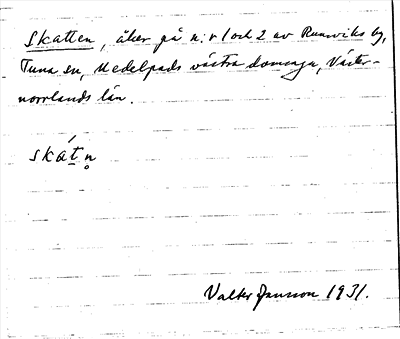 Skatten, åker på n:r 1 och 2 av Runviks by,
Tuna sn, Medelpads västra domsaga, Väster-
norrlands län.
skát̲n̥
Valter Jansson 1931.